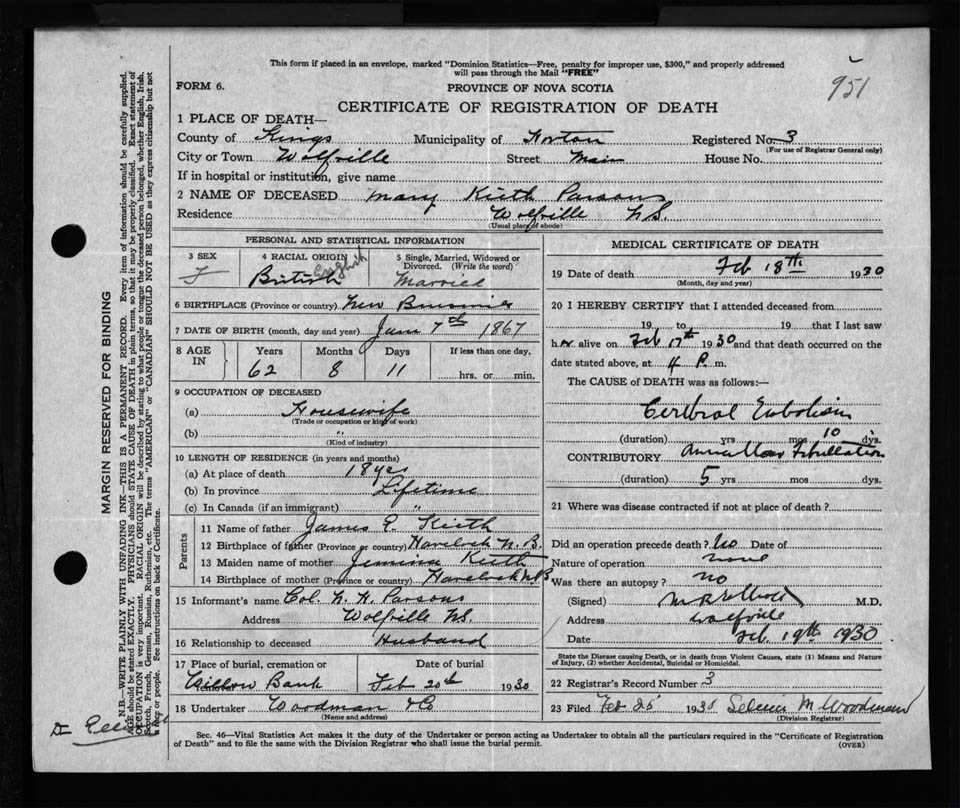 This form if placed in an envelope, marked "Dominion Statistics—Free, penalty for improper use, $300," and properly addressed
will pass through the Mail "FREE"
951
FORM 6.
PROVINCE OF NOVA SCOTIA
CERTIFICATE OF REGISTRATION OF DEATH
1 PLACE OF DEATH—
County of Kings Municipality of Horton Registered No. 3
(For use of Registrar General only)
City or Town Wolfville Street Main House No.
If in hospital or institution, give name
2 NAME OF DECEASED Mary Kieth Parsons
Residence Wolfville N.S.
(Usual place of abode)
PERSONAL AND STATISTICAL INFORMATION
3 SEX
F
4 RACIAL ORIGIN
British English
5 Single, Married, Widowed or
Divorced. (Write the word)
Married
6 BIRTHPLACE (Province or country) New Brunswick
7 DATE OF BIRTH (month, day and year) Jan 7th 1867
8 AGE IN
Years Months Days If less than one day,
62 8 11 hrs. or min.
9 OCCUPATION OF DECEASED
(a) Housewife
(Trade or occupation or kind of work)
(b) "
(Kind of industry)
10 LENGTH OF RESIDENCE (in years and months)
(a) At place of death 18 yrs
(b) In province Lifetime
(c) In Canada (if an immigrant) "
Parents
11 Name of father James E. Kieth
12 Birthplace of father (Province or country) Havelock N.B.
13 Maiden name of mother Jemima Kieth
14 Birthplace of mother (Province or country) Havelock NB
15 Informant's name Col. N. H. Parsons
Address Wolfville N.S.
16 Relationship to deceased Husband
17 Place of burial, cremation or
Willow Bank
Date of burial
Feb 20th 1930
18 Undertaker Woodman & Co
(Name and address)
MEDICAL CERTIFICATE OF DEATH
19 Date of death Feb 18th 1930
(Month, day and year)
20 I HEREBY CERTIFY that I attended deceased from
19 to 19 that I last saw
her alive on Feb 17th 1930 and that death occurred on the
date stated above, at 4 P. m.
The CAUSE of DEATH was as follows:—
Cerebral Embolism
(duration) yrs mos 10 dys.
CONTRIBUTORY Auricular Fibrillation
(duration) 5 yrs mos dys.
21 Where was disease contracted if not at place of death?
Did an operation precede death? No Date of
Nature of operation none
Was there an autopsy? no
(Signed) M.D.
Address Wolfville
Date Feb 19th 1930
State the Disease causing Death, or in death from Violent Causes, state (1) Means and Nature
of Injury, (2) whether Accidental, Suicidal or Homicidal.
22 Registrar's Record Number 3
23 Filed Feb 25 1930 M Woodman
(Division Registrar)
Sec. 46—Vital Statistics Act makes it the duty of the Undertaker or person acting as Undertaker to obtain all the particulars required in the "Certificate of Registration
of Death" and to file the same with the Division Registrar who shall issue the burial permit.
(OVER)
MARGIN RESERVED FOR BINDING
N.B.—WRITE PLAINLY WITH UNFADING INK—THIS IS A PERMANENT RECORD. Every item of information should be carefully supplied.
AGE should be stated EXACTLY. PHYSICIANS should STATE CAUSE OF DEATH in plain terms, so that it may be properly classified. Exact statement of
OCCUPATION is very important. RACIAL ORIGIN will be described by stating to what people or tongue the deceased person belonged, whether English, Irish,
Scotch, French, German, Russian, Ruthenian, etc. The terms "AMERICAN" or "CANADIAN" SHOULD NOT BE USED as they express citizenship but not
a race or people. See instructions on back of Certificate.